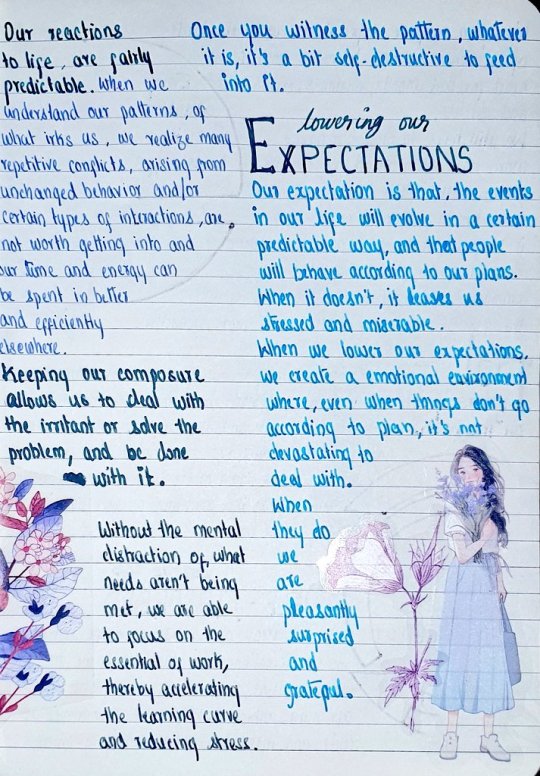 Our reactions
to life, are fairly
predictable. When we
understand our patterns, of
what irks us, we realize many
repetitive conflicts, arising from
unchanged behavior and/or
certain types of interactions, are
not worth getting into and
our time and energy can
be spent in better
and efficiently
elsewhere.
Keeping our composure
allows us to deal with
the irritant or solve the
problem, and be done
with it.
Without the mental
distraction of, what
needs aren't being
met, we are able
to focus on the
essential of work,
thereby accelerating
the learning curve
and reducing stress.
Once you witness the pattern, whatever
it is, it's a bit self-destructive to feed
into it.
lowering our
EXPECTATIONS
Our expectation is that, the events
in our life will evolve in a certain
predictable way, and that people
will behave according to our plans.
When it doesn't, it leaves us
stressed and miserable.
When we lower our expectations,
we create a emotional environment
where, even when things don't go
according to plan, it's not
devastating to
deal with.
When
they do
we
are
pleasantly
surprised
and
grateful.